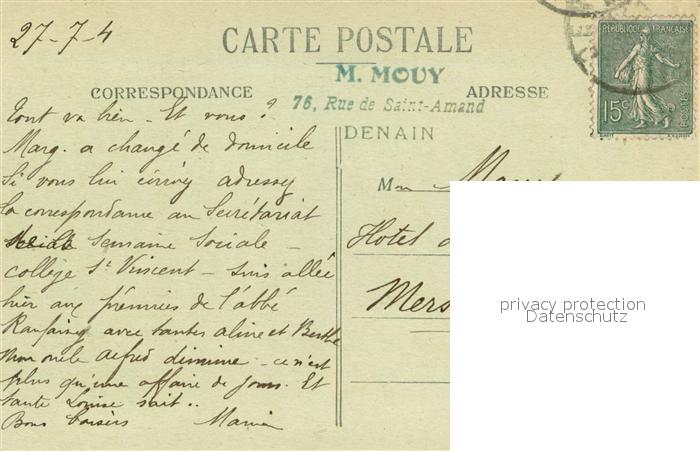 27-7-4
CARTE POSTALE
M. MOUY
CORRESPONDANCE
ADRESSE
76, Rue de Saint-Amand
DENAIN
REPUBLIQUE FRANÇAISE
15c
POSTES
Tout va bien. Et vous ?
Marg. a changé de domicile
Si vous lui écrivez adressez
la correspondance au Secrétariat
Semaine Sociale –
collège St Vincent – Suis allée
hier aux prémices de l'abbé
avec tantes Aline et Berthe
Mon oncle Alfred diminue – ce n'est
plus qu'une affaire de jours. Et
tante Louise sait..
Bons baisers
M
Hotel
Mers
privacy protection
Datenschutz